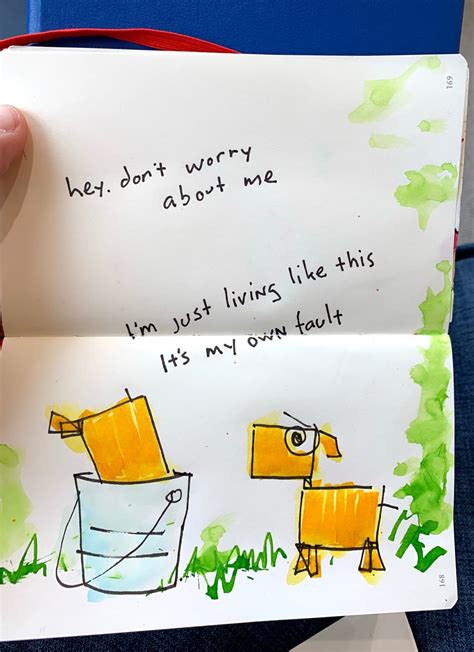 169
hey. don't worry
about me
I'm just living like this
It's my own fault
168